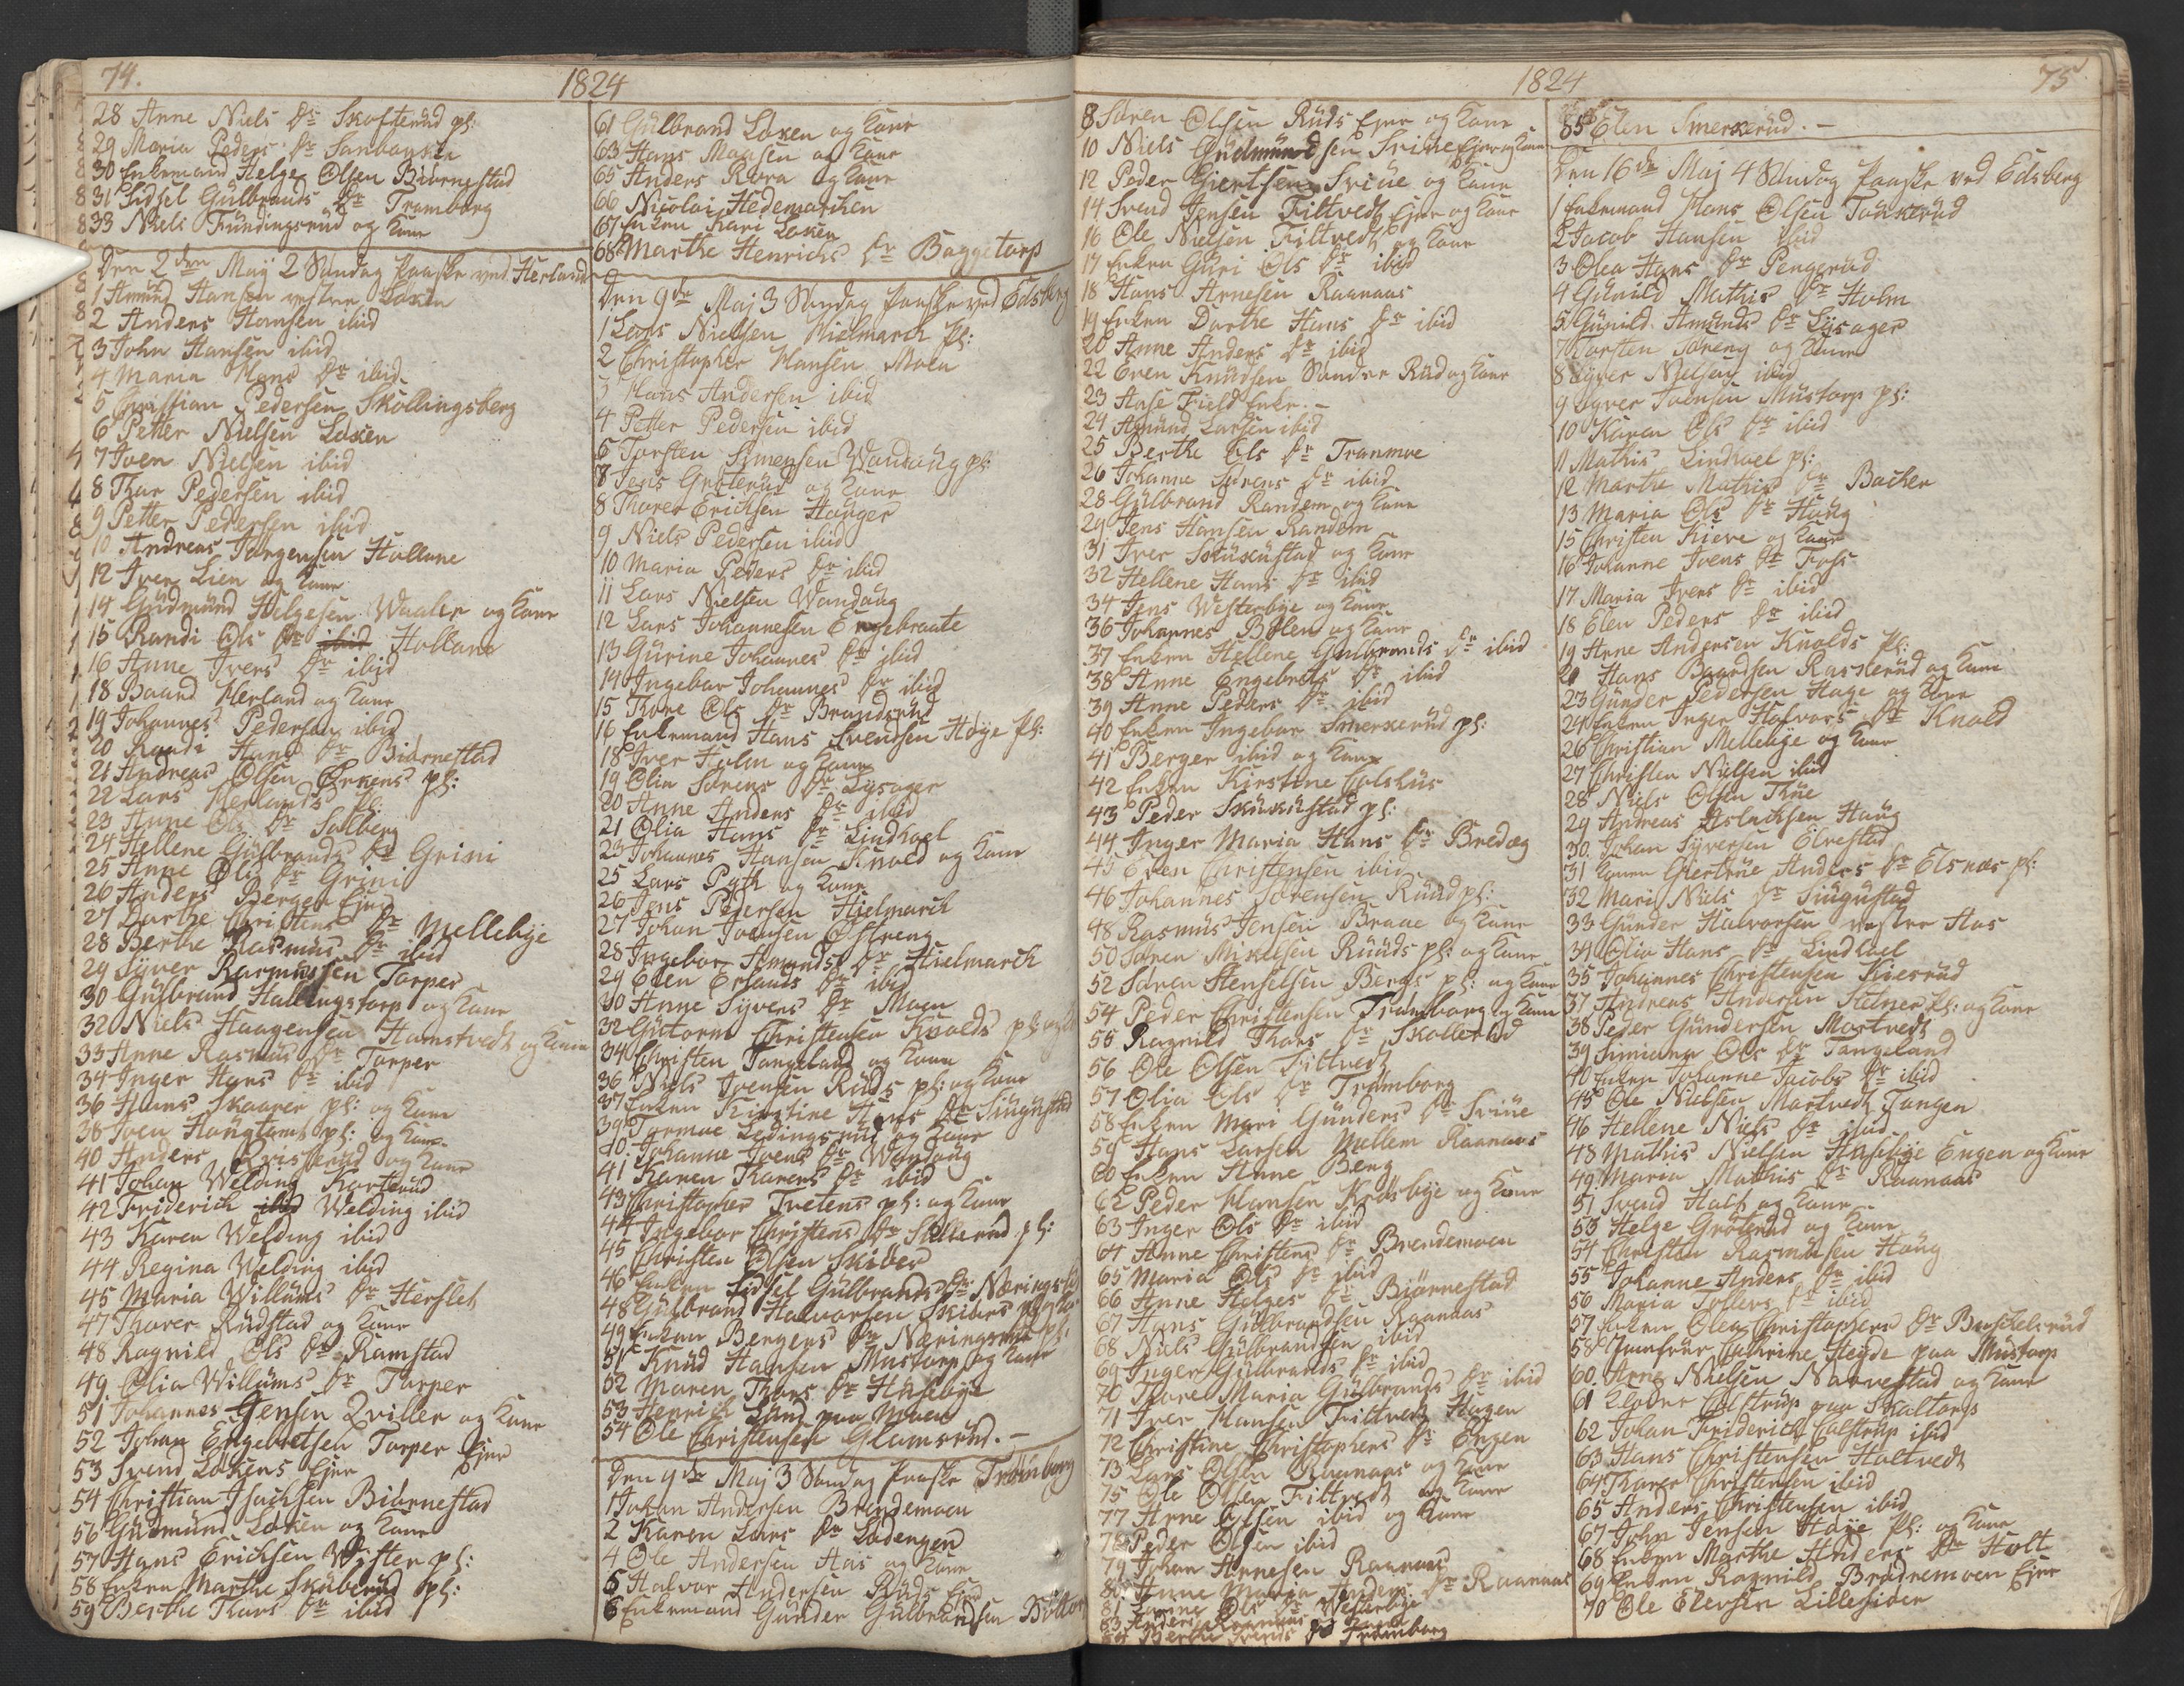 74.
1824
28 Anne Niels Dr Skofterud pl:
29 Maria Peders Dr Sandaugen
30 Enkemand Helge Olsen Biørnestad
31 Sidsel Gulbrands Dr Tramborg
33 Niels Fundingsrud og Kone
Den 2den Maÿ 2 Søndag Paaske ved Herland
1 Amund Hansen vestre Løken
2 Anders Hansen ibid
3 John Hansen ibid
4 Maria Hans Dr ibid
5 Christian Pedersen Skollingsberg
6 Petter Nielsen Løken
7 Iven Nielsen ibid
8 Thor Pedersen ibid
9 Petter Pedersen ibid
10 Andreas Jørgensen Hollane
12 Iver Lien og Kone
14 Gudmund Helgesen Waaler og Kone
15 Randi Ols Dr ibid Hollane
16 Anne Ivers Dr ibid
18 Baard Herland og Kone
19 Johannes Pedersen ibid
20 Randi Hans Dr Biørnestad
21 Andreas Olsen Ørkens pl:
22 Lars Herlands pl:
23 Anne Ols Dr Solberg
24 Hellene Gulbrands Dr Grini
25 Anne Ols Dr Grini
26 Anders Berger Ejer
27 Dorthe Christens Dr Mellebye
28 Berthe Rasmus Dr ibid
29 Syver Rasmussen Torper
30 Gulbrand Hallingstorp og Kone
32 Niels Haagensen Hamstvedt og Kone
33 Anne Rasmus Dr Torper
34 Inger Hans Dr ibid
36 Hans Skaarer pl: og Kone
38 Iven Haugtomt pl: og Kone
40 Anders Risterud og Kone
41 Johan Welding Korterud
42 Friderich ibid Welding ibid
43 Karen Welding ibid
44 Regina Welding ibid
45 Maria Willums Dr Herslet
47 Thorer Rudstad og Kone
48 Ragnild Ols Dr Ramstad
49 Olia Willums Dr Torper
51 Johannes Jensen Qviller og Kone
52 Johan Engebretsen Torper Ejer
53 Svend Løkens Ejer
54 Christian Isachsen Biørnestad
56 Gudmund Løken og Kone
57 Hans Erichsen Wister pl:
58 Enken Marthe Skuberud pl:
59 Berthe Thors Dr ibid
61 Gulbrand Løken og Kone
63 Hans Monsen og Kone
65 Anders Rora og Kone
66 Nicolai Hedemarken
67 Enken Kari Løken
68 Marthe Henrichs Dr Baggetorp
Den 9de Maj 3 Søndag Paaske ved Edsberg
1 Lars Nielsen Hielmarch pl:
2 Christopher Hansen Moen
3 Hans Andersen ibid
4 Petter Pedersen ibid
6 Torsten Simensen Wandaug pl:
7 Jens Grøterud og Kone
8 Thorer Erichsen Hauger
9 Niels Pedersen ibid
10 Maria Peders Dr ibid
11 Lars Nielsen Wandaug
12 Lars Johannesen Engebraate
13 Gurine Johannes Dr ibid
14 Ingebor Johannes Dr ibid
15 Thore Ols Dr Brandsrud
16 Enkemand Hans Svendsen Høye pl:
18 Iver Holm og Kone
19 Olia Sørens Dr Lysager
20 Anne Anders Dr ibid
21 Olia Hans Dr Lindhoel
23 Johannes Hansen Knold og Kone
25 Lars Pyth og Kone
26 Jens Pedersen Hielmarch
27 Johan Ivensen Østreng
28 Ingebor Amunds Dr Hielmarch
29 Elen Erlands Dr ibid
30 Anne Syvers Dr Moen
32 Guttorm Christensen Knolds pl:
34 Christen Tangeland og Kone
36 Niels Ivensen Ruds pl: og Kone
37 Enken Kirstine Hans Dr Siugustad
39 Tormoe Ledingsrud og Kone
40 Johanne Ivens Dr Wandaug
41 Karen Thorers Dr ibid
43 Christopher Tvetens pl: og Kone
44 Ingebor Christens Dr Slitterud pl:
45 Christen Olsen Skiber
46 Enken Sidsel Gulbrands Dr Næringsrud
48 Gulbrand Halvorsen Skibers pl og Kone
49 Enken Bergers Dr Næringsrud pl:
51 Knud Hansen Mustorp og Kone
52 Maren Thors Dr Husebye
53 Henrich Lund paa Moen
54 Ole Christensen Glamsrud. –
Den 9de Maj 3 Søndag Paaske Trømborg
1 Johan Andersen Brendemoen
2 Karen Lars Dr Lødengen
4 Ole Andersen Aas og Kone
5 Halvor Andersen Ruds Ejer
6 Enkemand Gunder Gulbrandsen
1824
75
8 Søren Olsen Ruds Ejer og Kone
10 Niels Gudmundsen Sviue Ejer og Kone
12 Peder Giertsen Sviue og Kone
14 Svend Jensen Filtvedt Ejer og Kone
16 Ole Nielsen Filtvedt og Kone
17 Enken Guri Ols Dr ibid
18 Hans Arnesen Raanaas
19 Enken Dorthe Hans Dr ibid
20 Anne Anders Dr ibid
22 Even Knudsen Søndre Rud og Kone
23 Aase Field Enke. –
24 Amund Larsen ibid
25 Berthe Ols Dr Tranmoe
26 Johanne Sørens Dr ibid
28 Gulbrand Randem og Kone
29 Jens Hansen Randem
31 Iver Skukustad og Kone
32 Hellene Hans Dr ibid
34 Jens Westerbye og Kone
36 Johannes Bølen og Kone
37 Enken Hellene Gulbrands Dr ibid
38 Anne Engebrets Dr ibid
39 Anne Peders Dr ibid
40 Enken Ingebor Smerkerud pl:
41 Berger ibid og Kone
42 Enken Kirstine Colshus
43 Peder Skukustad pl:
44 Inger Maria Hans Dr Bredeg
45 Even Christensen ibid
46 Johannes Sørensen Ruud pl:
48 Rasmus Jensen Braae og Kone
50 Søren Mikelsen Ruuds pl: og Kone
52 Søren Stenselsen Bergs pl: og Kone
54 Peder Christensen Trømborg og Kone
55 Ragnild Thors Dr Skollerud
56 Ole Olsen Filtvedt
57 Olia Ols Dr Trømborg
58 Enken Mari Gunders Dr Sviue
59 Hans Larsen Mellem Raanaas
60 Enken Anne Berg
62 Peder Hansen Krosbye og Kone
63 Inger Ols Dr ibid
64 Anne Christens Dr Brendemoen
65 Maria Ols Dr ibid
66 Anne Helges Dr Biørnestad
67 Hans Gulbrandsen Raanaas
68 Niels Gulbrandsen ibid
69 Inger Gulbrands Dr ibid
70 Thore Maria Gulbrands Dr ibid
71 Iver Hansen Filtvedt Haugen
72 Christine Christophers Dr Engen
73 Lars Olsen Raanaas og Kone
75 Ole Olsen Filtvedt og Kone
77 Arne Olsen ibid og Kone
78 Peder Olsen ibid
79 Johan Arnesen Raanaas
80 Anne Maria Anders Dr Raanaas
81 Ols Dr Westerbye
83 Anders og Kone
84 Berthe Svends Dr Trømborg
85 Elen Smerkerud. –
Den 16de Maj 4 Søndag Paaske ved Edsberg
1 Enkemand Hans Olsen Takkerud
2 Jacob Hansen ibid
3 Olea Hans Dr Pengerud
4 Gunild Mathis Dr Holm
5 Gunild Amunds Dr Lysager
7 Torsten Søreng og Kone
8 Syver Nielsen ibid
9 Syver Ivensen Mustorp pl:
10 Karen Ols Dr ibid
11 Mathis Lindhoel pl:
12 Marthe Mathis Dr Backen
13 Maria Ols Dr Haug
15 Christen Kieve og Kone
16 Johanne Ivens Dr Foss
17 Maria Ivers Dr ibid
18 Elen Peders Dr ibid
19 Arne Andersen Knolds pl:
21 Hans Baardsen Raskerud og Kone
23 Gunder Pedersen Hage og Kone
24 Enken Inger Halvors Dr Knold
26 Christian Mellebye og Kone
27 Christen Nielsen ibid
28 Niels Olsen Thue
29 Andreas Aslachsen Haug
30 Johan Syversen Elvestad
31 Konen Giertrue Anders Dr Elsnæs pl:
32 Mari Niels Dr Siugustad
33 Gunder Halvorsen vestre Aas
34 Olia Hans Dr Lindhoel
35 Johannes Christensen Kiserud
37 Andreas Andersen Slitner pl: og Kone
38 Peder Gundersen Mostvedt
39 Simiane Ols Dr Tangeland
40 Enken Johanne Jacobs Dr ibid
45 Ole Nielsen Mostvedt Tangen
46 Hellene Niels Dr ibid
48 Mathis Nielsen Husebye Engen og Kone
49 Maria Mathis Dr Raanaas
51 Svend Hals og Kone
53 Helge Grøterud og Kone
54 Christen Rasmusen Haug
55 Johanne Anders Dr ibid
56 Maria Tollevs Dr ibid
57 Enken Olea Christophers Dr Buskelsrud
58 Jomfrue Cathrine Heyde paa Mustorp
60 Arne Nielsen Narvestad og Kone
61 Colstrup paa Skaltorp
62 Johan Friderich Colstrup ibid
63 Hans Christensen Holtvedt
64 Thorer Christensen ibid
65 Anders Christensen ibid
67 John Jensen Høye pl: og Kone
68 Enken Marthe Anders Dr Holt
69 Enken Ragnild Brødremoen Ejer
70 Ole Elevsen Lillesiden